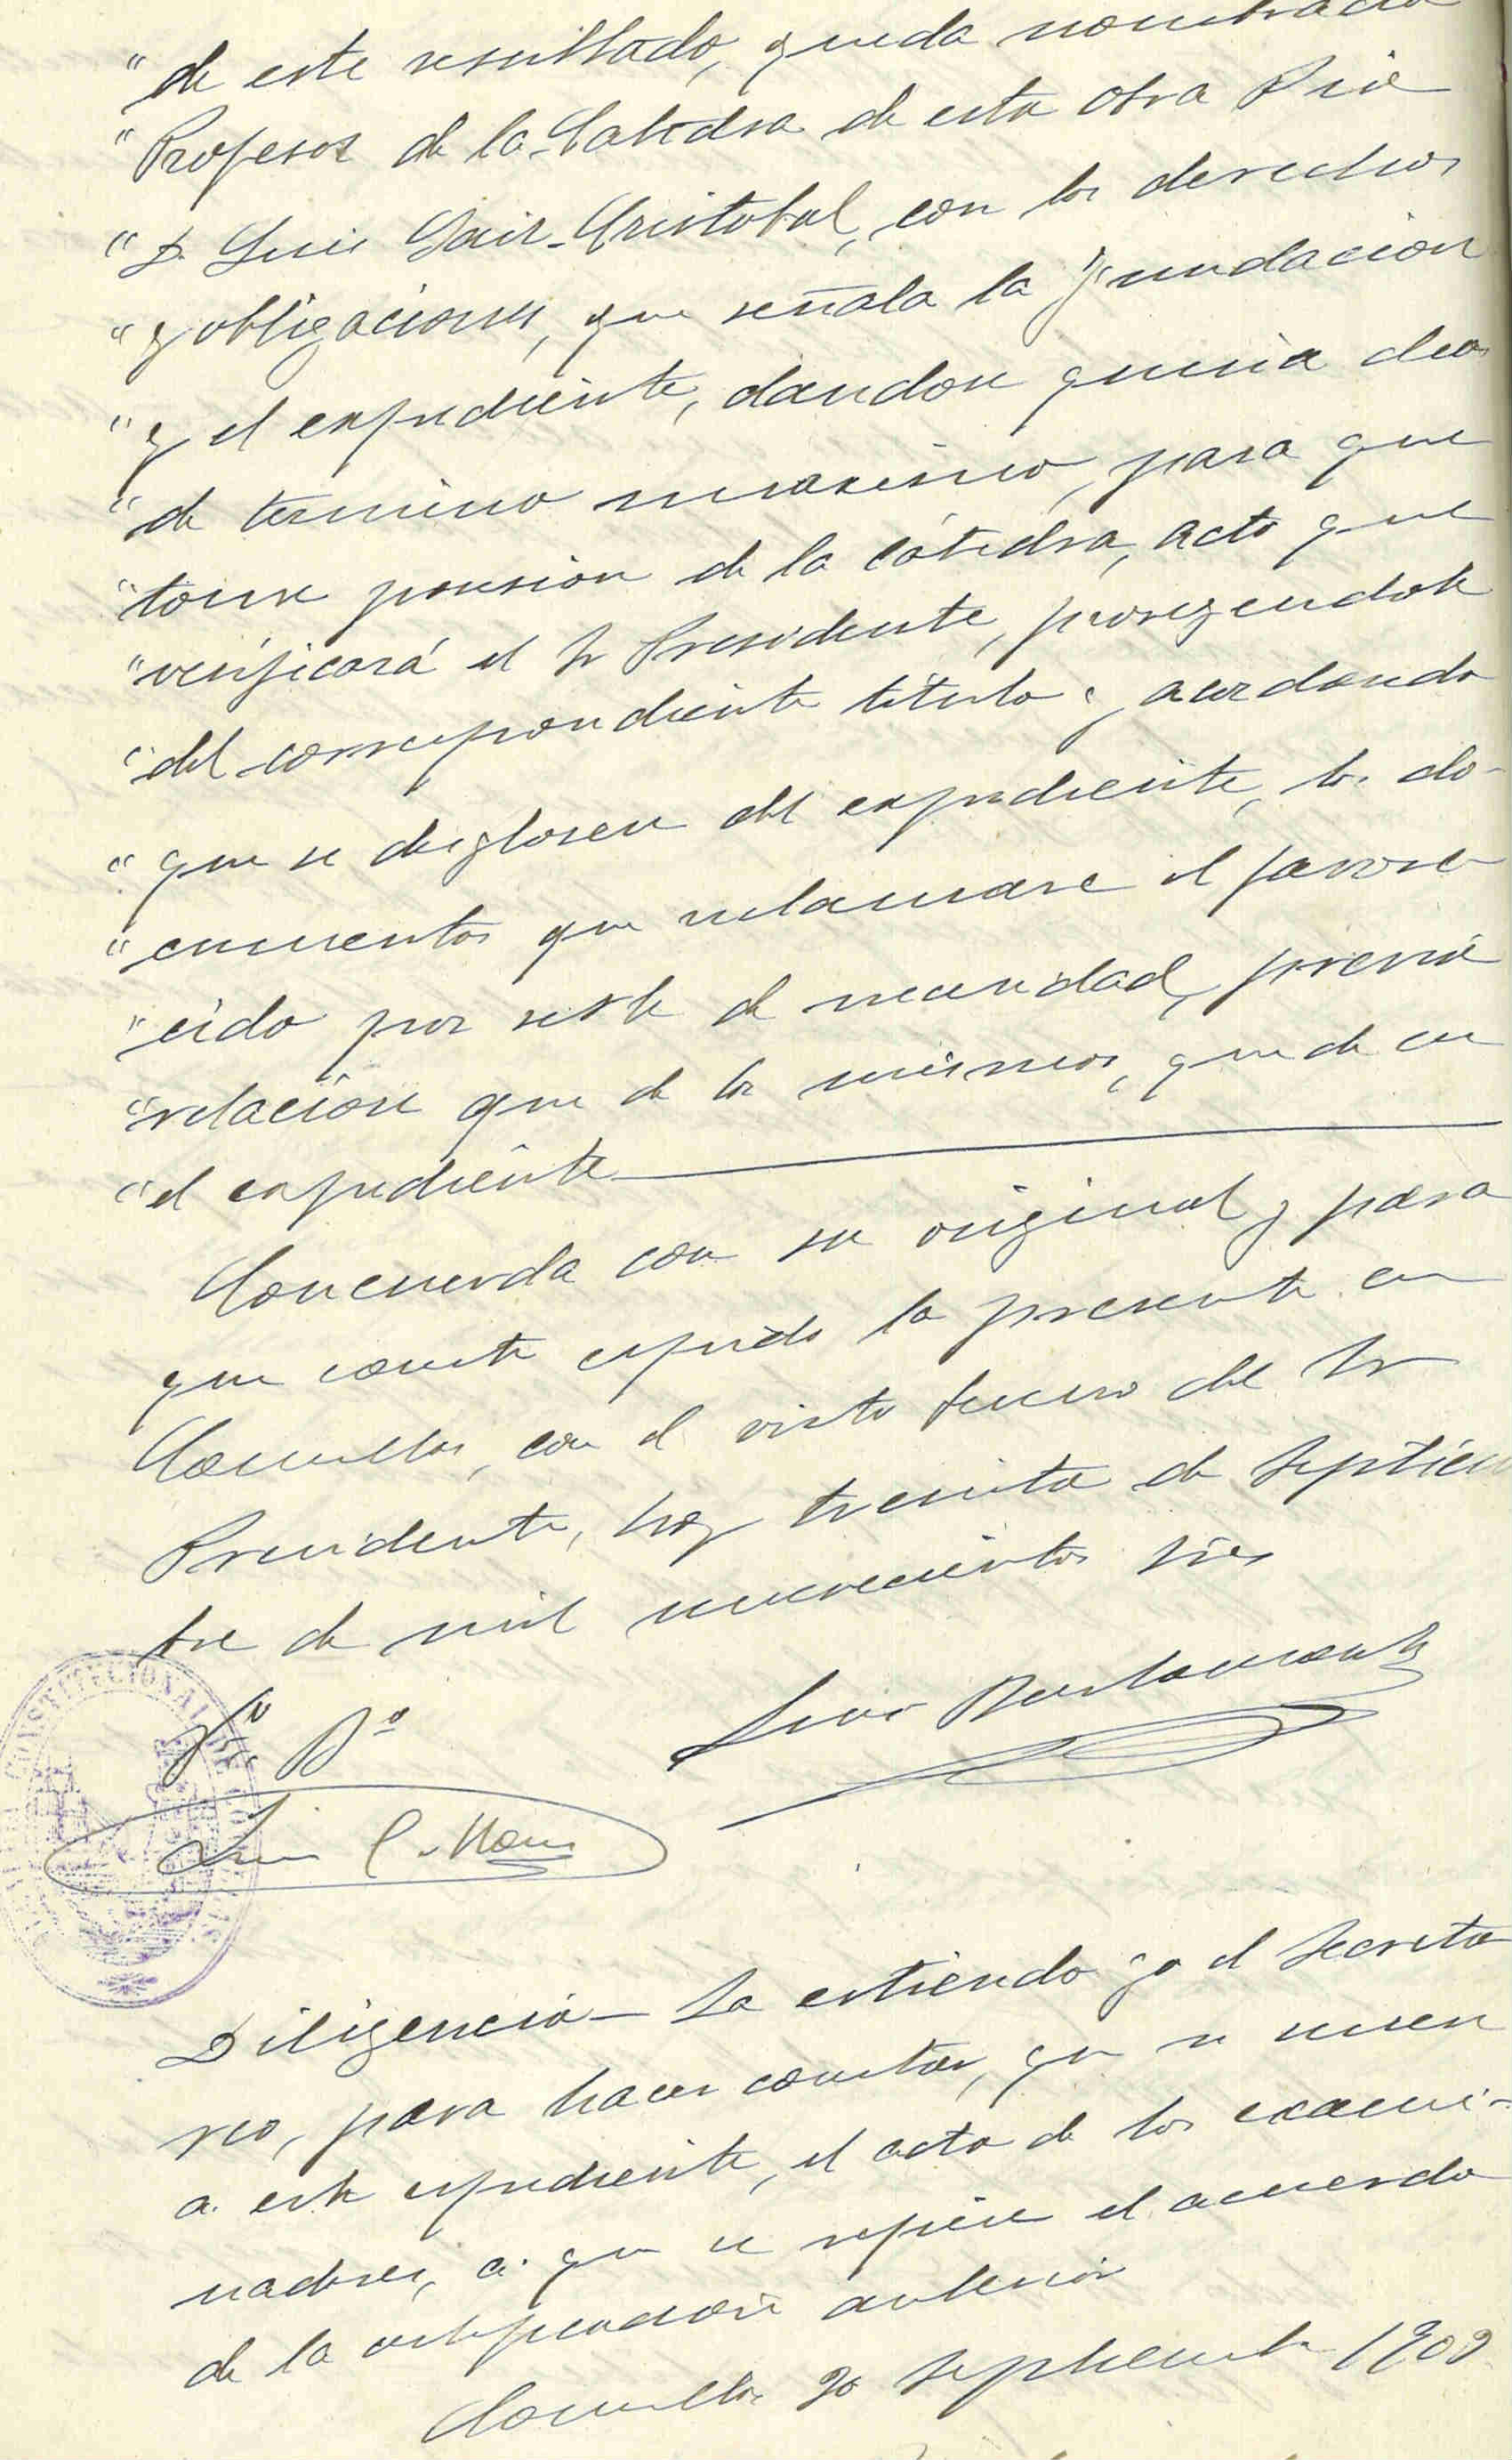 "de este resultado, queda nombrado
"Profesor de la Catedra de esta Obra Pia
"D. Luis Sair Cristobal, con los derechos
"y obligaciones, que señala la fundacion
"y el expediente, dandose quince dias
"de termino maximo, para que
"tome posesion de la cátedra, acto que
"verificará el Sr Presidente, proveyendole
"del correspondiente título y acordando
"que se desglosen del expediente, los do-
"cumentos que reclamase el favore
"cido por serle de necesidad, previa
"relación que de los mismos, quede en
"el expediente
Concuerda con su original y para
que conste expido la presente en
Comillas, con el visto bueno del Sr
Presidente, hoy treinta de Septiem
bre de mil novecientos tres
Vº Bº
Luis
CONSTITUCIONAL DE
Diligencia - La extiendo yo el Secreta
rio, para hacer constar, que se unen
a este expediente, el acta de los exami-
nadores, a que se refiere el acuerdo
de la certificación anterior
Comillas 30 Septiembre 1903